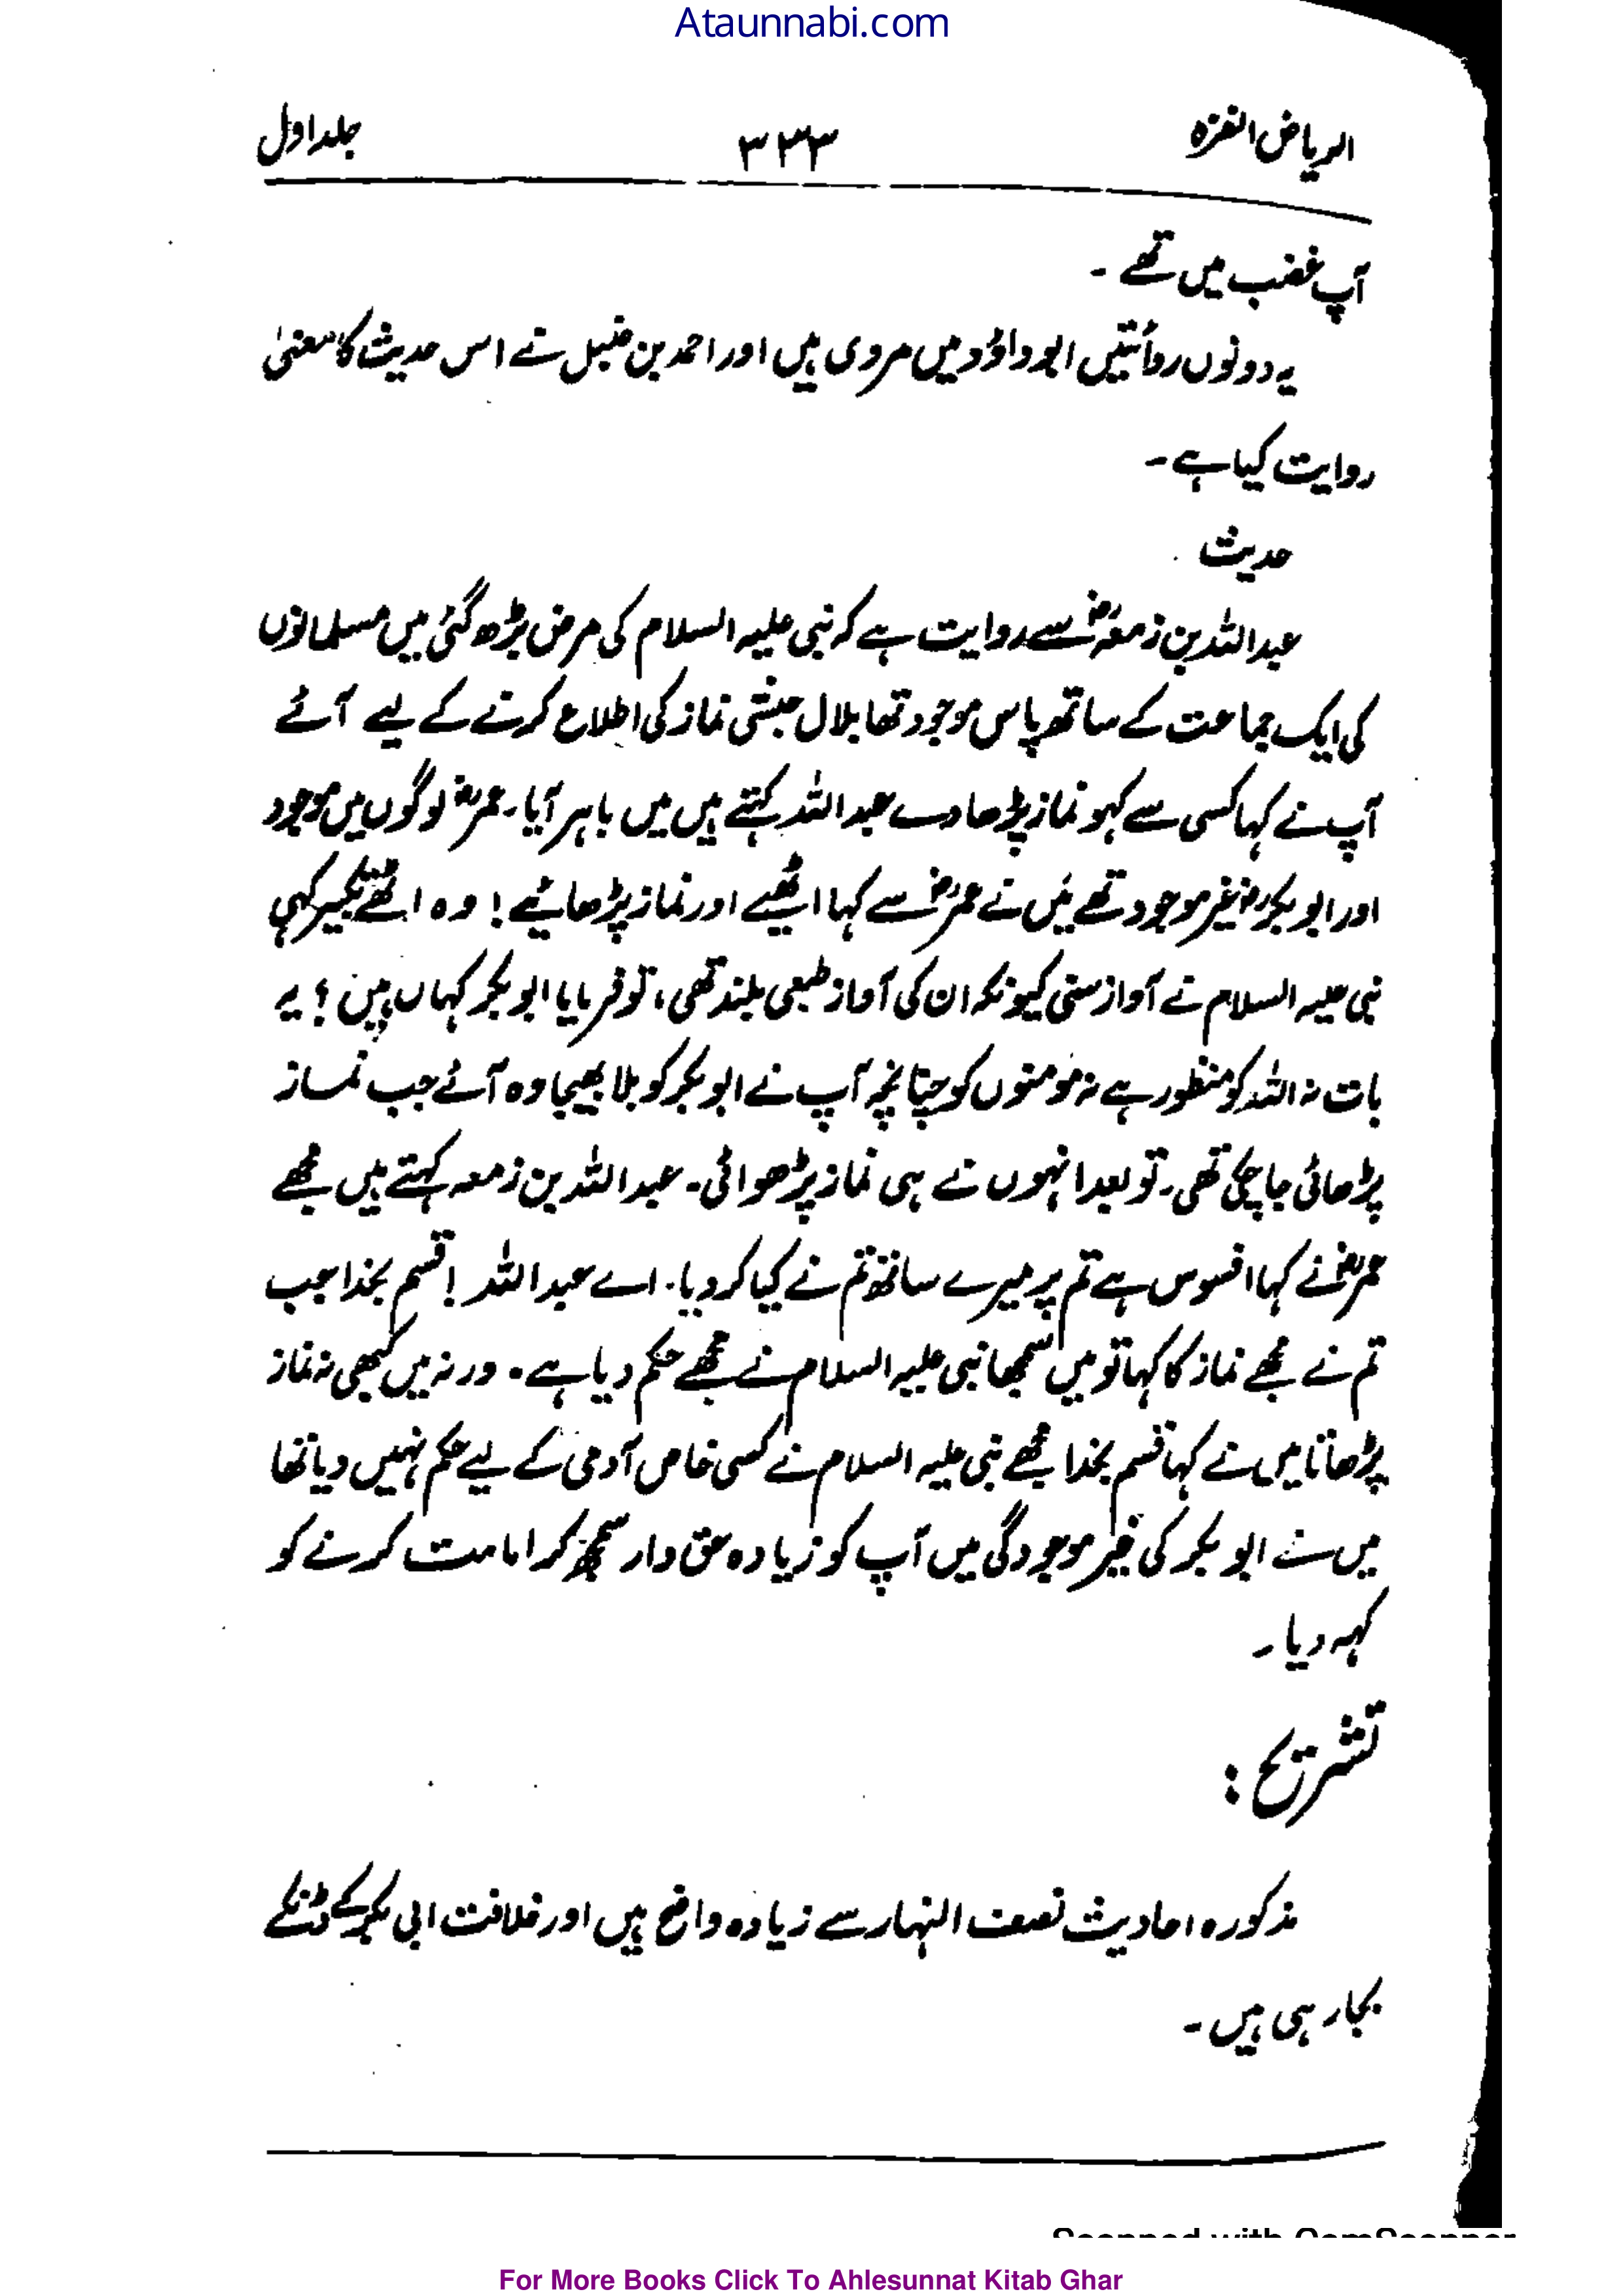 Ataunnabi.com
الریاض النضرہ ۳۳۳ جلد اول
آپ غضب میں تھے ۔
یہ دونوں روائتیں ابوداؤد میں مروی ہیں اور احمد بن حنبل نے اس حدیث کا معنیٰ
روایت کیا ہے ۔
حدیث
عبداللہ بن زمعہؓ سے روایت ہے کہ نبی علیہ السلام کی مرض بڑھ گئی میں مسلمانوں
کی ایک جماعت کے ساتھ پاس موجود تھا بلال حبشی نماز کی اطلاع کرنے کے لیے آئے
آپ نے کہا کسی سے کہو نماز پڑھا دے عبداللہ کہتے ہیں میں باہر آیا ۔ عمرؓ لوگوں میں موجود
اور ابوبکرؓ غیر موجود تھے میں نے عمرؓ سے کہا اٹھیے اور نماز پڑھائیے ! وہ اٹھے تکبیر کہی
نبی علیہ السلام نے آواز سنی کیونکہ ان کی آواز طبعی بلند تھی ، تو فرمایا ابوبکر کہاں ہیں ؟ یہ
بات نہ اللہ کو منظور ہے نہ مومنوں کو چنانچہ آپ نے ابوبکر کو بلا بھیجا وہ آئے جب نماز
پڑھائی جا چکی تھی ۔ تو بعد انہوں نے ہی نماز پڑھوائی ۔ عبداللہ بن زمعہ کہتے ہیں مجھے
عمرؓ نے کہا افسوس ہے تم پر میرے ساتھ تم نے کیا کر دیا ۔ اے عبداللہ ! قسم بخدا جب
تم نے مجھے نماز کا کہا تو میں سمجھا نبی علیہ السلام نے مجھے حکم دیا ہے ۔ ورنہ میں کبھی نہ نماز
پڑھاتا میں نے کہا قسم بخدا مجھے نبی علیہ السلام نے کسی خاص آدمی کے لیے حکم نہیں دیا تھا
میں نے ابوبکر کی غیر موجودگی میں آپ کو زیادہ حق دار سمجھ کر امامت کرنے کو
کہہ دیا ۔
تشریح :
مذکورہ احادیث نصف النہار سے زیادہ واضح ہیں اور خلافت ابی بکر کے ڈنکے
بجا رہی ہیں ۔
Scanned with CamScanner
For More Books Click To Ahlesunnat Kitab Ghar